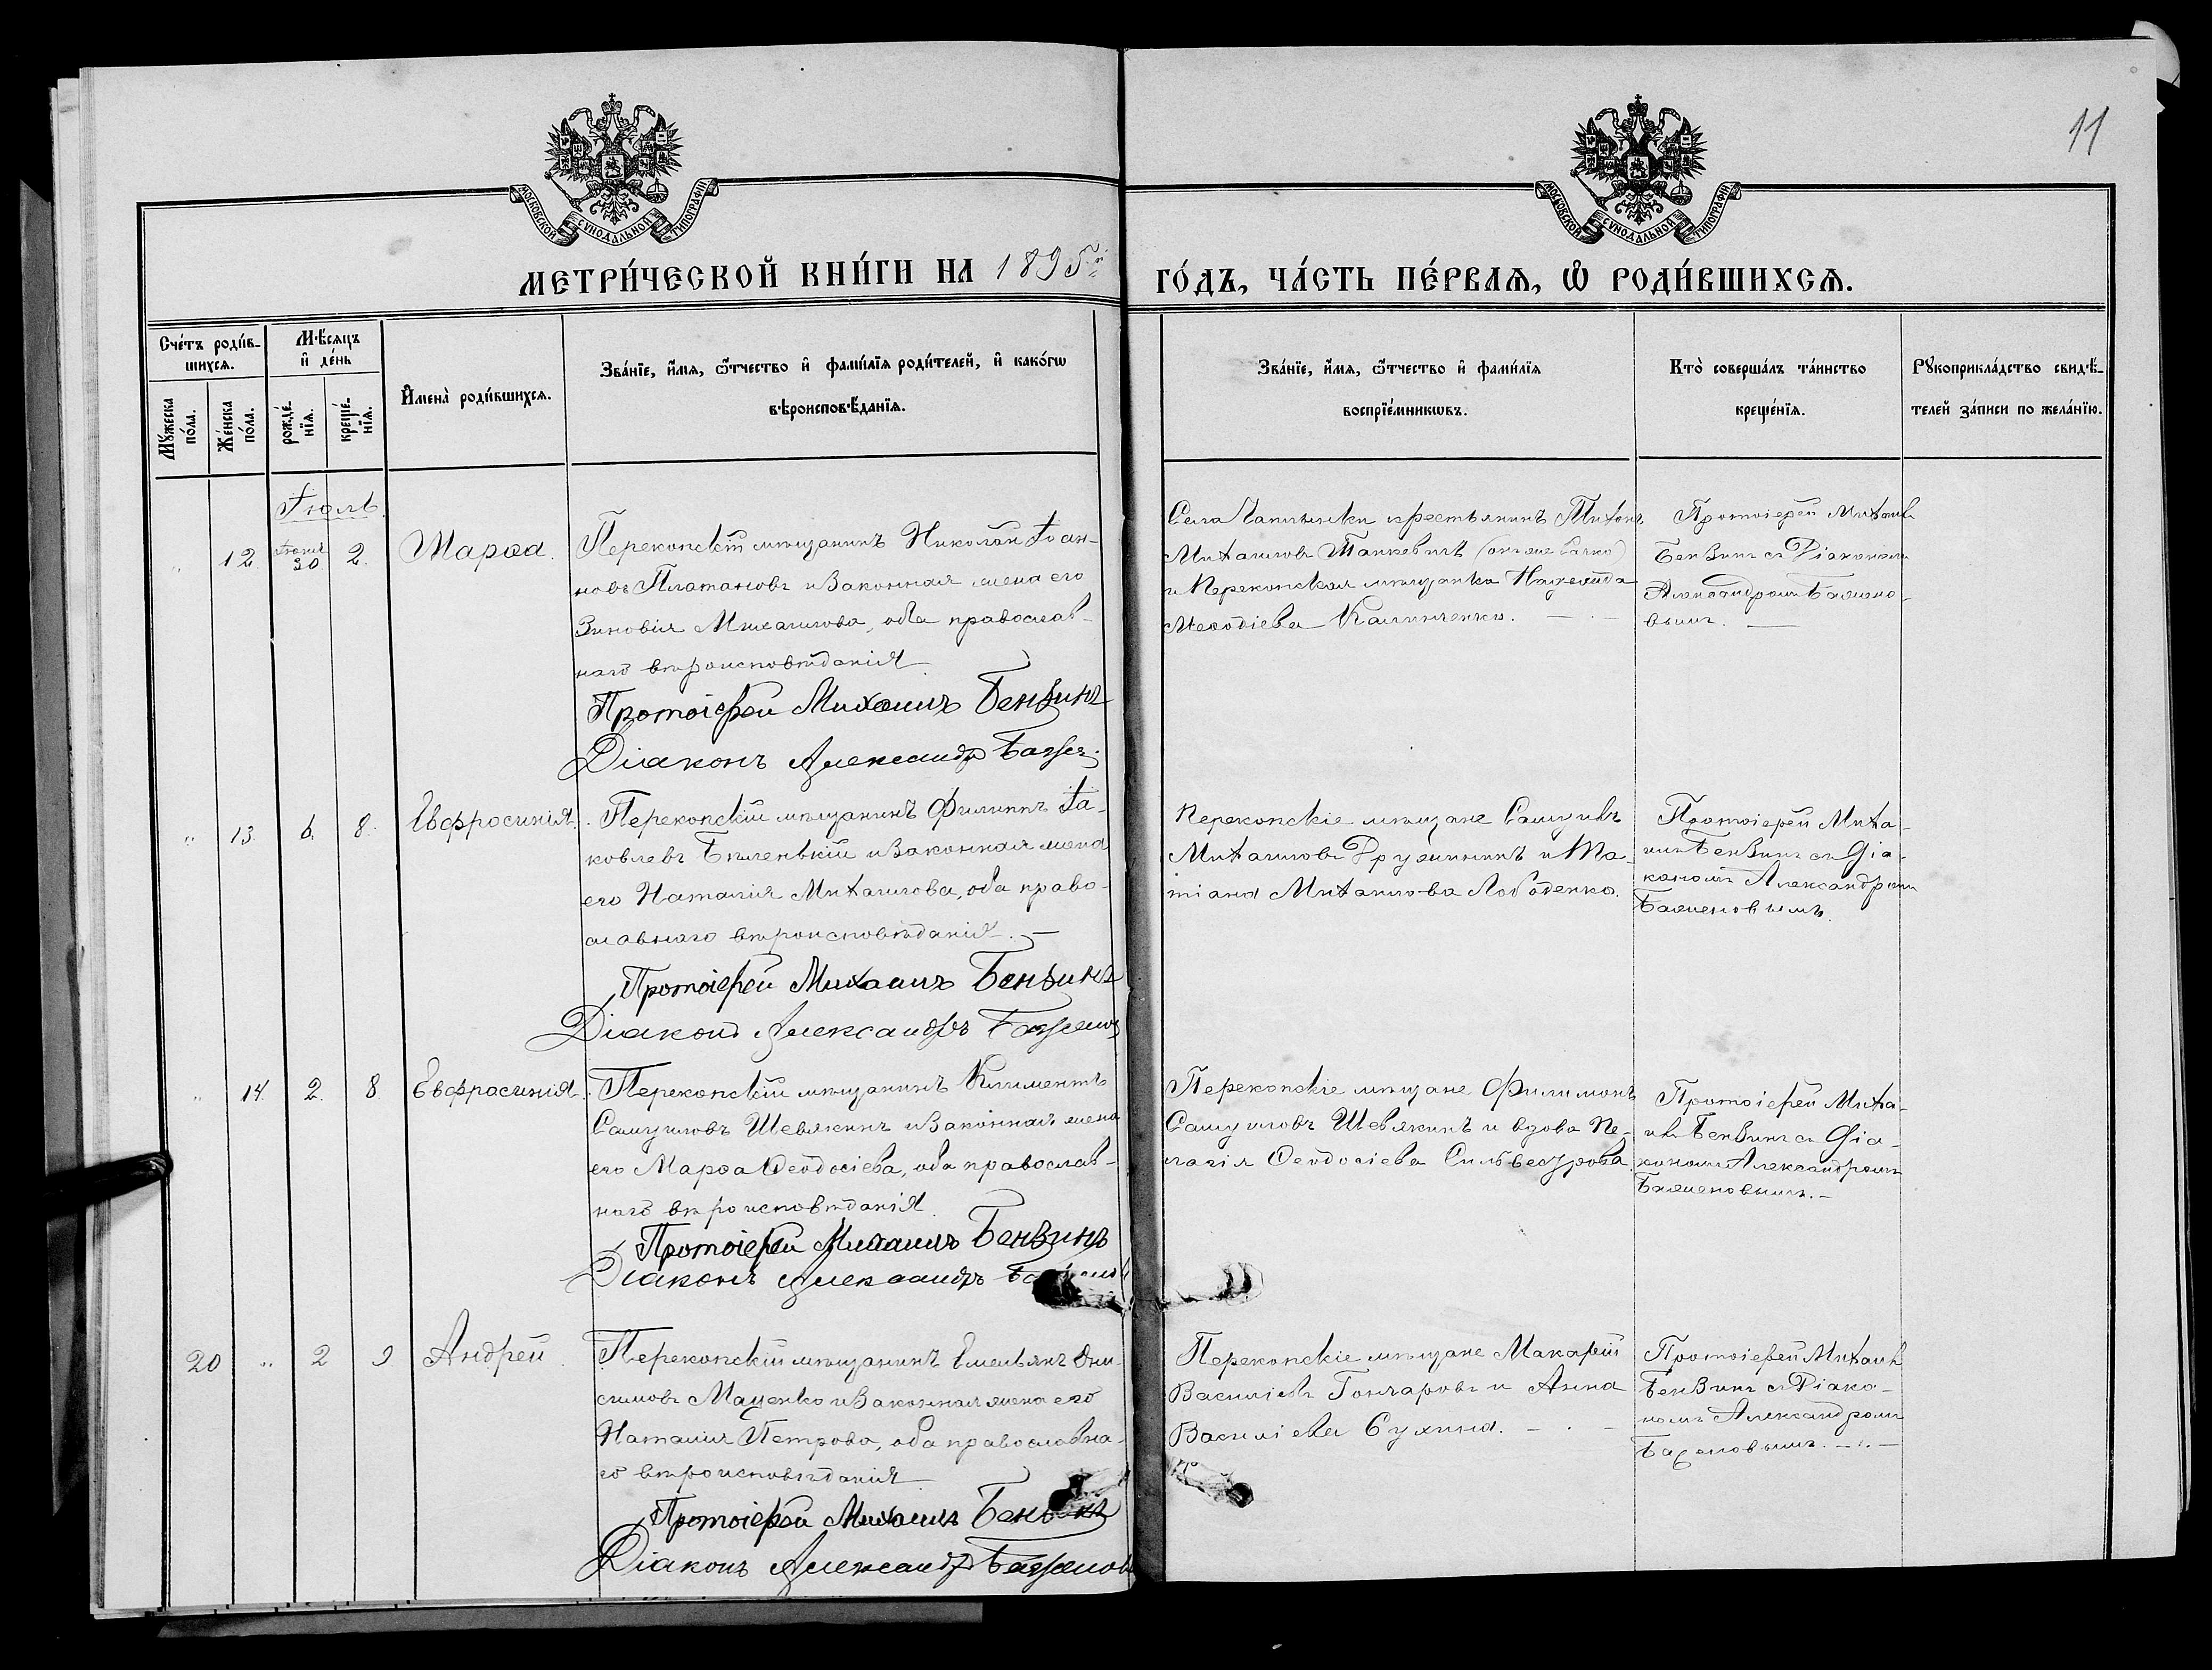 11
МОСКОВСКОЙ СѴНОДАЛЬНОЙ ТИПОГРАФІИ
МОСКОВСКОЙ СѴНОДАЛЬНОЙ ТИПОГРАФІИ
МЕТРИ́ЧЕСКОЙ КНИ́ГИ НА 1895й
ГО́ДЪ, ЧА́СТЬ ПЕ́РВАѦ, Ѡ҆ РОДИ́ВШИХСѦ.
Сче́тъ роди́в-
шихсѧ.
Мꙋ́жеска по́ла.
Же́нска по́ла.
Мѣ́сѧцъ
и҆ де́нь
рожде́-нїѧ.
креще́-нїѧ.
И҆мена̀ роди́вшихсѧ.
Зва́нїе, и҆́мѧ, ѻ҆́тчество и҆ фами́лїѧ роди́телей, и҆ како́гѡ
вѣроисповѣ́данїѧ.
Зва́нїе, и҆́мѧ, ѻ҆́тчество и҆ фами́лїѧ
воспрїе́мникѡвъ.
Кто̀ соверша́лъ та́инство
креще́нїѧ.
Рꙋкоприкла́дство свидѣ́-
телей за́писи по жела́нїю.
Іюль
" 12 Іюня 30 2. Марѳа.
Перекопскій мѣщанинъ Николай Іоан-
новъ Платоновъ и законная жена его
Зиновія Михаилова, оба православ-
наго вѣроисповѣданія
Протоіерей Михаилъ Бензинъ
Діаконъ Александръ
Села Чаплынки крестьянинъ Тихонъ
Михаиловъ
и Перекопская мѣщанка Надежда
Меѳодіева Калиниченко. —
Протоіерей Михаилъ
Бензинъ съ Діакономъ
Александромъ Бажено-
вымъ. —
" 13. 6. 8. Евфросинія.
Перекопскій мѣщанинъ Филиппъ Іа-
ковлевъ Бѣленькій и законная жена
его Наталія Михаилова, оба право-
славнаго вѣроисповѣданія. —
Протоіерей Михаилъ Бензинъ
Діаконъ Александръ Баженовъ
Перекопскіе мѣщане Самуилъ
Михаиловъ Дружининъ и Та-
тіана Михаилова Лободенко.
Протоіерей Миха-
илъ Бензинъ съ Діа-
кономъ Александромъ
Баженовымъ.
" 14. 2. 8 Евфросинія.
Перекопскій мѣщанинъ Климентъ
Самуиловъ Шевякинъ и законная жена
его Марѳа Ѳеодосіева, оба православ-
наго вѣроисповѣданія.
Протоіерей Михаилъ Бензинъ
Діаконъ Александръ
Перекопскіе мѣщане Филимонъ
Самуиловъ Шевякинъ и вдова Пе-
лагія Ѳеодосіева Сильвестрова.
Протоіерей Миха-
илъ Бензинъ съ Діа-
кономъ Александромъ
Баженовымъ. —
20 " 2 9 Андрей.
Перекопскій мѣщанинъ Емельянъ Они-
симовъ Маценко и законная жена его
Наталія Петрова, оба православна-
го вѣроисповѣданія
Протоіерей Михаилъ Бензинъ
Діаконъ Александръ Баженовъ
Перекопскіе мѣщане Макарій
Василіевъ Гончаровъ и Анна
Василіева Сухина. —
Протоіерей Михаилъ
Бензинъ съ Діако-
номъ Александромъ
Баженовымъ. —